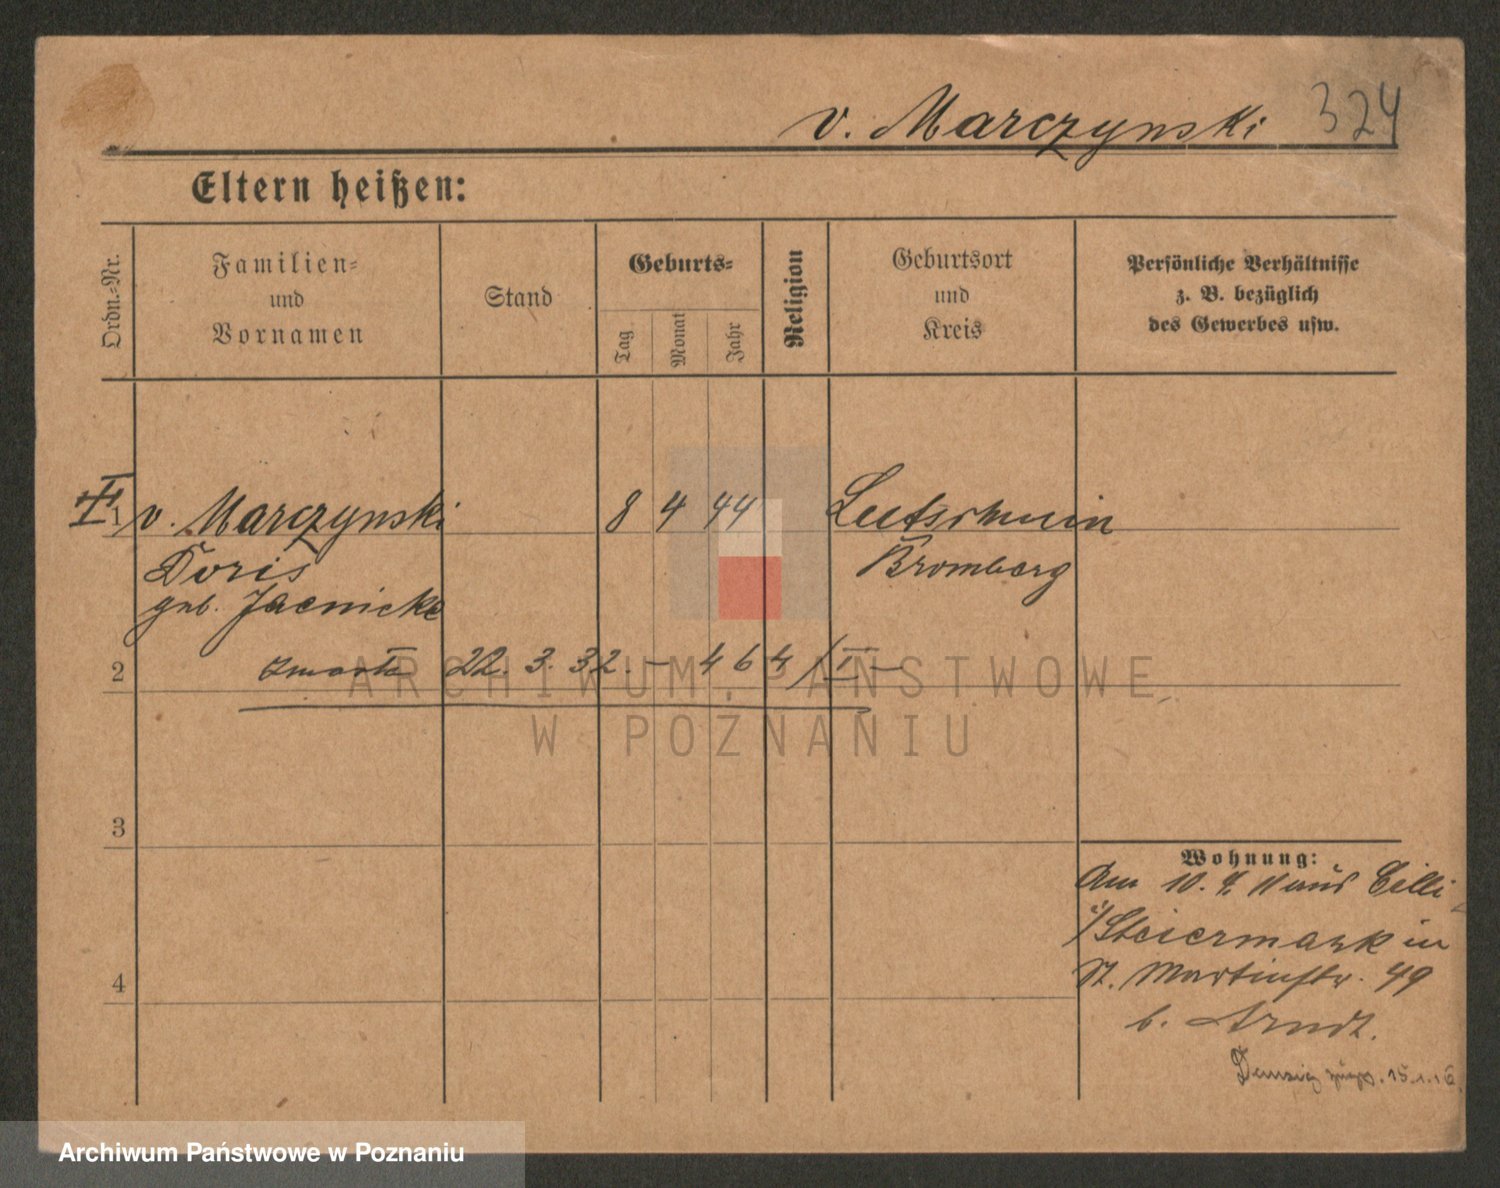 v. Marczynski 324
Eltern heißen:
Ordn.=Nr.
Familien=
und
Vornamen
Stand
Geburts=
Tag
Monat
Jahr
Religion
Geburtsort
und
Kreis
Persönliche Verhältnisse
z. B. bezüglich
des Gewerbes usw.
1 v. Marczynski 8 4 44
Doris Bromberg
geb. Jaenicke
2 zmarła 22. 3. 32. – 464/II –
ARCHIWUM PAŃSTWOWE
W POZNANIU
3
Wohnung:
Am 10. 9. 11 aus Cilli
i/Steiermark in
St. Martinstr. 49
b. Arndt.
4
Danzig 15.1.16
Archiwum Państwowe w Poznaniu